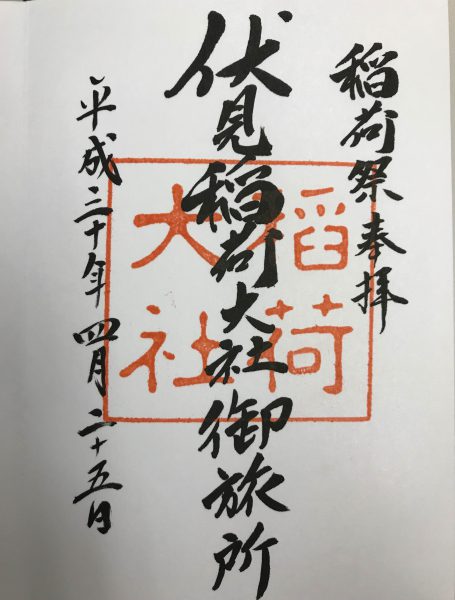 稲荷祭奉拝
伏見稲荷大社御旅所
稲荷
大社
平成三十年四月二十五日